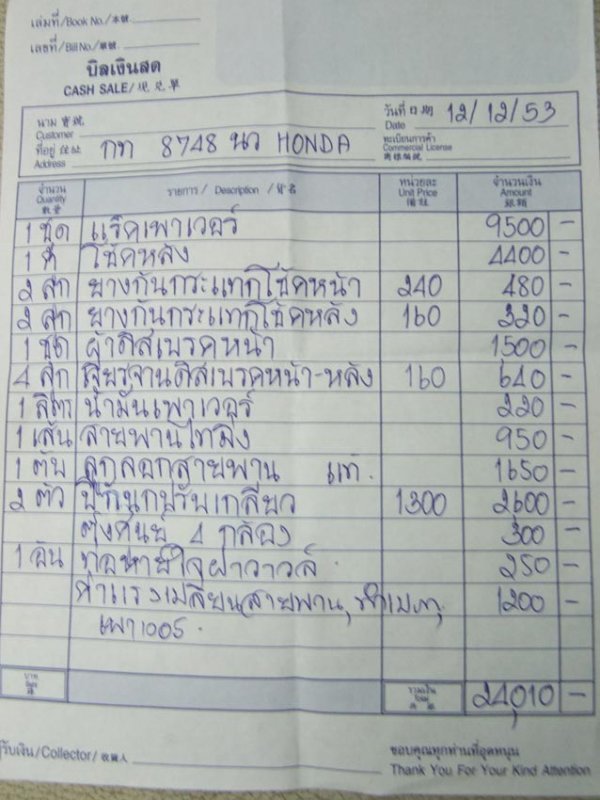 เล่มที่/Book No./本號
เลขที่/Bill No./號碼
บิลเงินสด
CASH SALE/現兌單
นาม 寶號
Customer
ที่อยู่ 住址
Address
กท 8748 นว HONDA
วันที่ 日期 12/12/53
Date
ทะเบียนการค้า
Commercial License
商標編號
จำนวน รายการ / Description / 貨名 หน่วยละ จำนวนเงิน
Quantity Unit Price Amount
數量 價銀 銀額
1 ชุด แร็คเพาเวอร์ 9500 -
1 คู่ โช๊คหลัง 4400 -
2 ลูก ยางกันกระแทกโช๊คหน้า 240 480 -
2 ลูก ยางกันกระแทกโช๊คหลัง 160 320 -
1 ชุด ผ้าดิสเบรคหน้า 1500 -
4 ลูก เจียรจานดิสเบรคหน้า-หลัง 160 640 -
1 ลิตร น้ำมันเพาเวอร์ 220 -
1 เส้น สายพานไทม์มิ่ง 950 -
1 ตับ ลูกลอกสายพาน แท้. 1650 -
2 ตัว ปีกนกปรับเกลียว 1300 2600 -
ตั้งศูนย์ 4 กล้อง 300 -
1 อัน ท่อหายใจฝาวาวล์ 250 -
ค่าแรงเปลี่ยนสายพาน, 1200 -
เพาเวอร์.
บาท รวมเงิน 24,010 -
Baht Total
ผู้รับเงิน/Collector/收銀人
ขอบคุณทุกท่านที่อุดหนุน
Thank You For Your Kind Attention